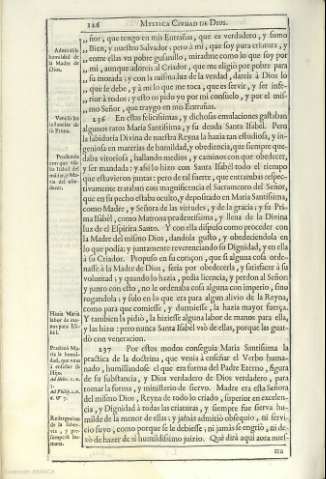 226
MYSTICA CIVDAD DE DIOS.
„ñor, que tengo en mis Entrañas, que es verdadero, y sumo
„Bien, y nuestro Salvador: pero à mi, que soy pura criatura, y
„entre ellas vn pobre gusanillo, miradme como lo que soy por
„mi, aunque adoreis al Criador, que me eligiò por pobre para
„su morada; y con la misma luz de la verdad, dareis à Dios lo
„que se debe, y à mi lo que me toca, que es servir, y ser infe-
„rior à todos: y esto os pido yo por mi consuelo, y por el mis-
„mo Señor, que traygo en mis Entrañas.
236 En estas felicissimas, y dichosas emulaciones gastaban
algunos ratos Maria Santissima, y su deuda Santa Isabel. Pero
la sabiduria Divina de nuestra Reyna la hazia tan estudiosa, y in-
geniosa en materias de humildad, y obediencia, que siempre que-
daba vitoriosa, hallando medios, y caminos con que obedecer,
y ser mandada: y assi lo hizo con Santa Isabel todo el tiempo
que estuvieron juntas: pero de tal suerte, que entrambas respec-
tivamente trataban con magnificencia el Sacramento del Señor,
que en su pecho estaba oculto, y depositado en Maria Santissima,
como Madre, y Señora de las virtudes, y de la gracia; y su Pri-
ma Isabel, como Matrona prudentissima, y llena de la Divina
luz de el Espiritu Santo. Y con ella dispuso como proceder con
la Madre del mismo Dios, dandola gusto, y obedeciendola en
lo que podia; y juntamente reverenciando su Dignidad, y en ella
à su Criador. Propuso en su coraçon, que si alguna cosa orde-
nasse à la Madre de Dios, seria por obedecerla, y satisfacer à su
voluntad: y quando lo hazia, pedia licencia, y perdon al Señor
y junto con esto, no le ordenaba cosa alguna con imperio, sino
rogandola; y solo en lo que era para algun alivio de la Reyna,
como para que comiesse, y durmiesse, la hazia mayor fuerça.
Y tambien la pidiò, la hiziesse alguna labor de manos para ella,
y las hizo: pero nunca Santa Isabel vsò de ellas, porque las guar-
dò con veneracion.
237 Por estos modos conseguia Maria Santissima la
practica de la doctrina, que venia à enseñar el Verbo huma-
nado, humillandose el que era forma del Padre Eterno, figura
de su substancia, y Dios verdadero de Dios verdadero, para
tomar la forma, y ministerio de siervo. Madre era esta Señora
del mismo Dios, Reyna de todo lo criado, superior en excelen-
cia, y Dignidad à todas las criaturas, y siempre fue sierva hu-
milde de la menor de ellas: y jamàs admitiò obsequio, ni servi-
cio suyo, como porque se le debiesse; ni jamàs se engriò, ni de-
xò de hazer de si humildissimo juizio. Què dirà aqui aora nues-
Admirable
humildad de
la Madre de
Dios.
Prudencia
Hazia Maria
labor de ma-
nos para Isa-
bel.